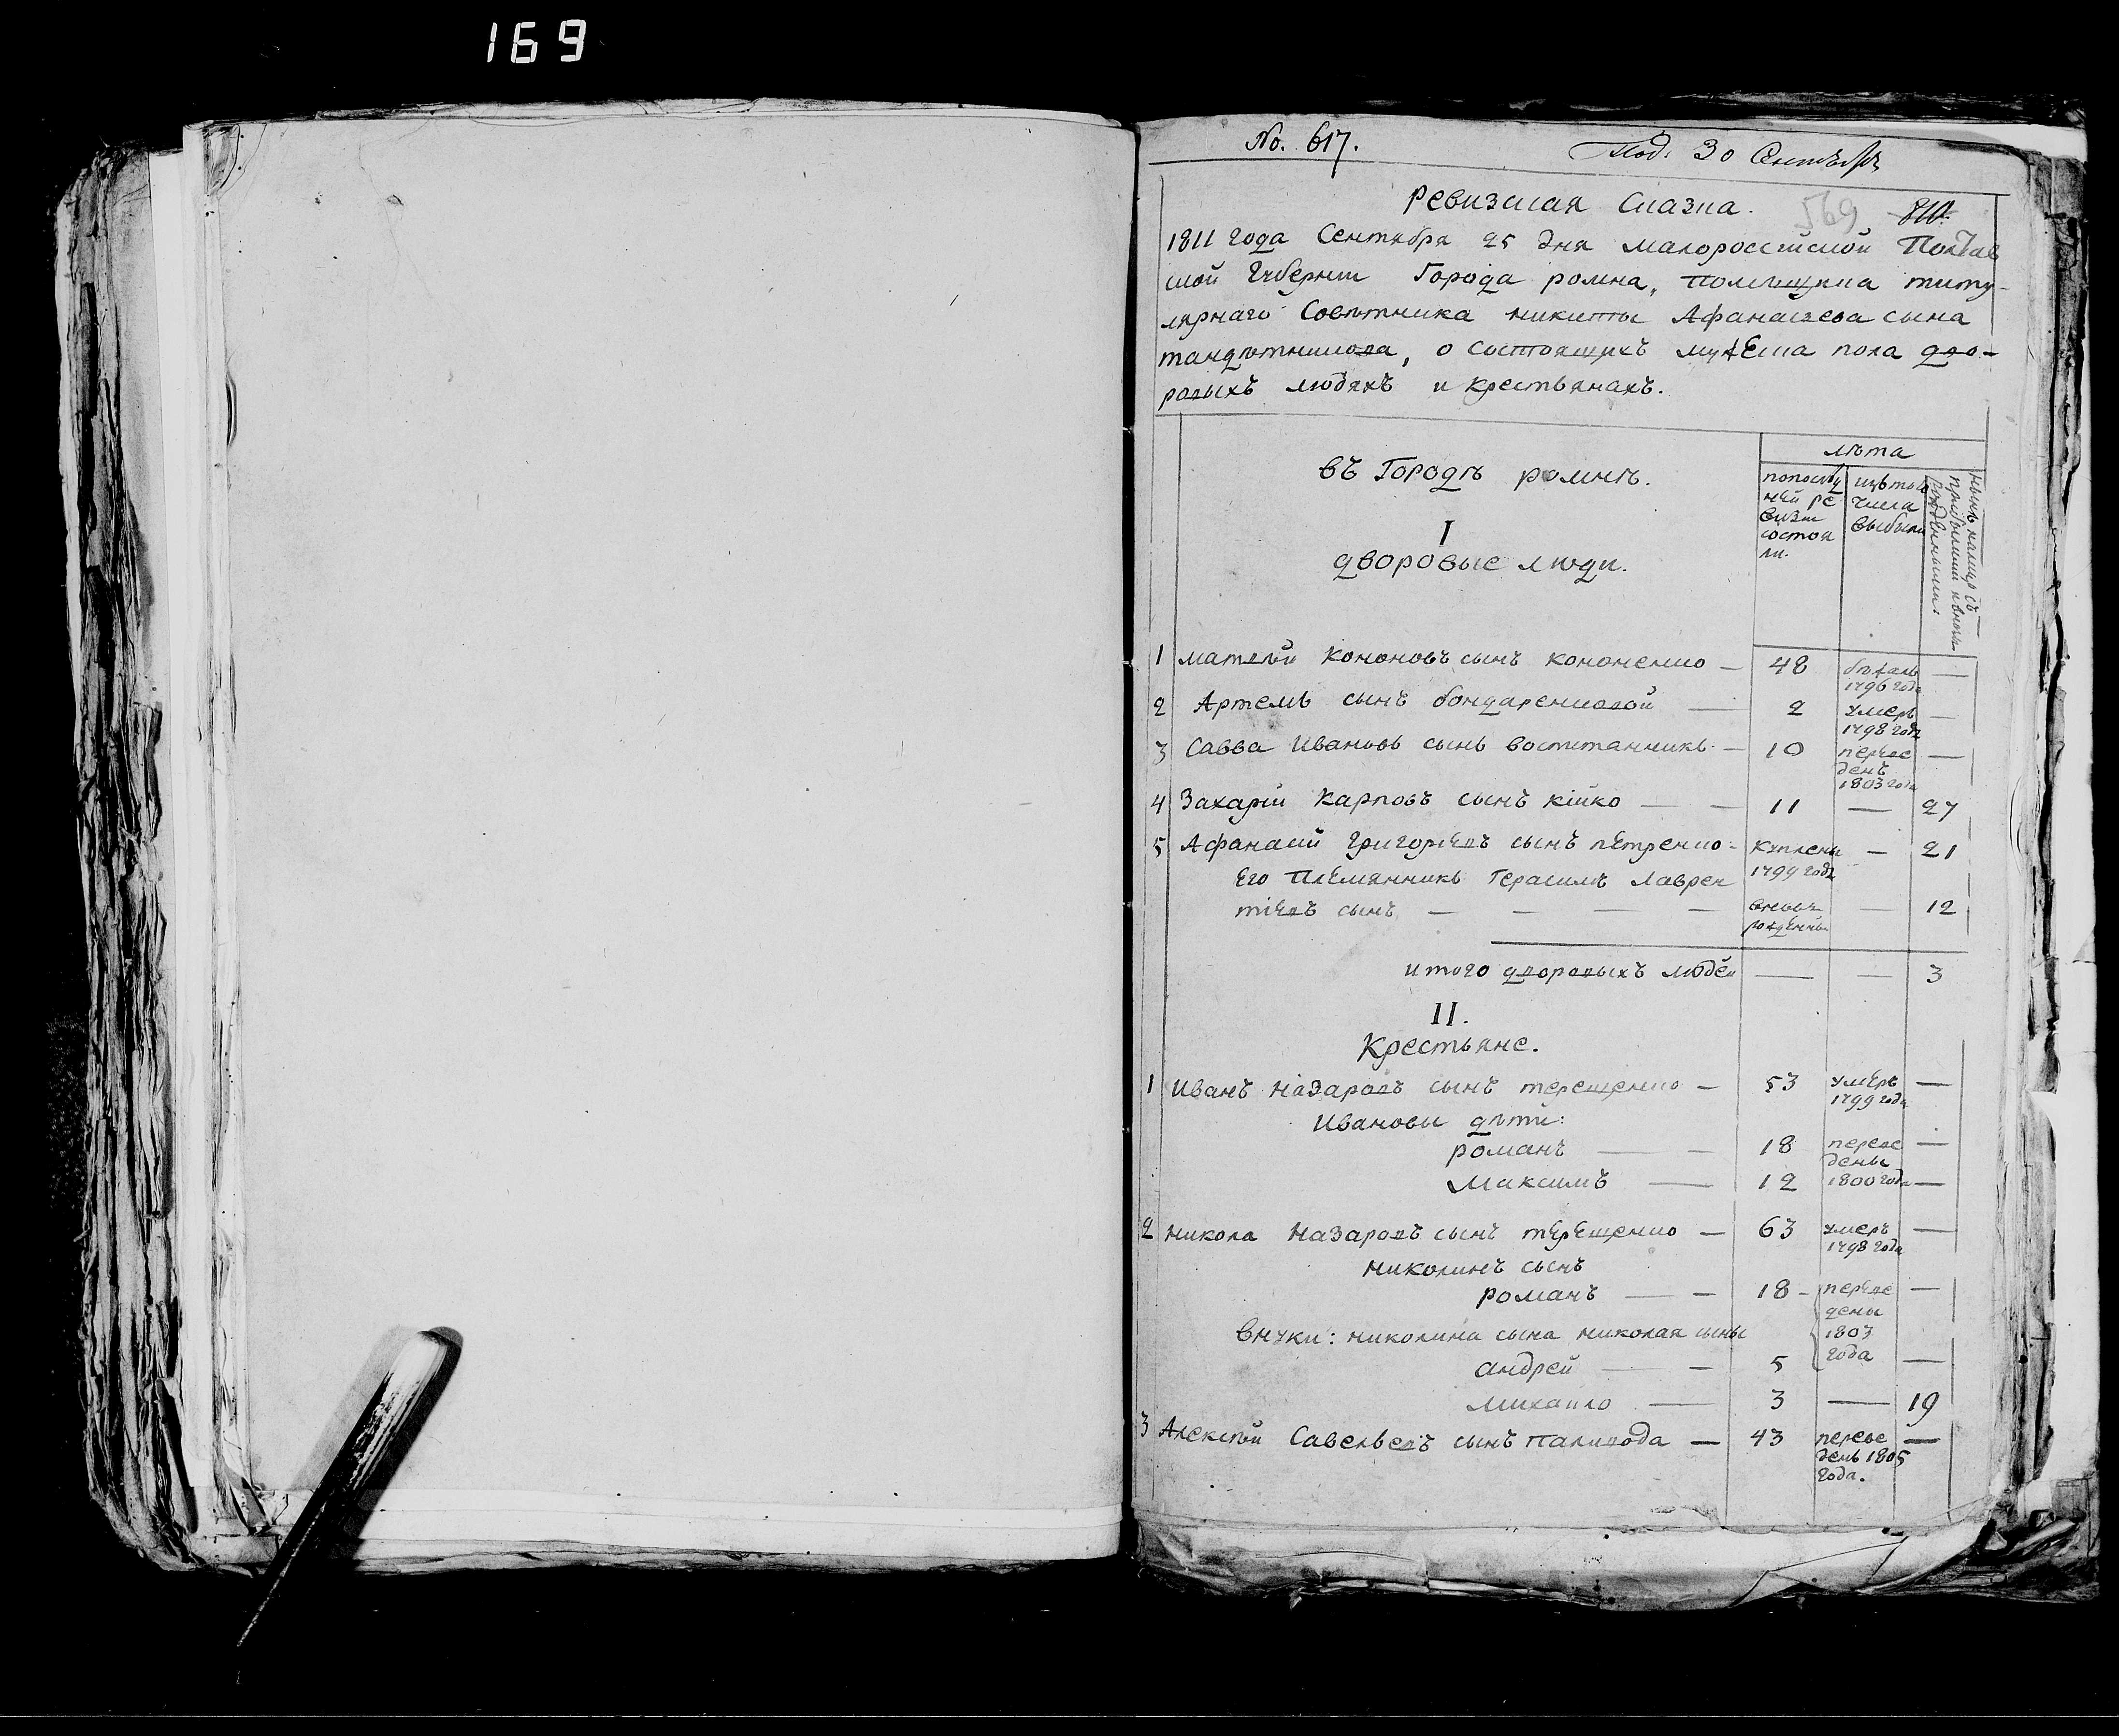 169
No. 617.
Под. 30 Сентября
Ревизская Сказка.
569 810.
1811 года Сентября 25 дня малороссийской Полтав
ской Губернии Города ромна, помещика титу-
лярнаго Советника никиты Афанасиева сына
о состоящихъ мужеска пола дво-
ровыхъ людяхъ и крестьянахъ.
въ Городѣ ромнѣ.
лѣта
I
дворовые люди.
попослѣд
ней ре
визіи
состоя
ли.
изътого
числа
выбыло
нынѣ налицо съ
прибылыми и вновь
рожденными.
1 матвѣй Кононовъ сынъ кононенко — 48 бѣжалъ 1796 года —
2 Артемъ сынъ бондаренковой — 2 умеръ 1798 года —
3 Савва Ивановъ сынъ воспитанникъ — 10 переве
денъ 1803 года —
4 Захарій Карповъ сынъ кійко — — 11 — 27
5 Афанасій Григориевъ сынъ петренко — купленъ 1799 года — 21
Его племянникъ Герасимъ Лаврен
тіевъ сынъ — — — — вновь рожденный — 12
итого дворовыхъ людей — — 3
II.
Крестьяне.
1 Иванъ Назаровъ сынъ терещенко — 53 умеръ 1799 года —
Ивановы дѣти:
романъ — — 18 переве
дены —
Максимъ — 12 1800 года —
2 никола Назаровъ сынъ терещенко — 63 умеръ 1798 года —
николинъ сынъ
романъ — — 18 — переве
дены —
внуки: николина сына николая сыны 1803
андрей — — 5 года —
михаило — 3 — 19
3 Алексѣй Савельевъ сынъ паливода — 43 переве
денъ 1805
года. —